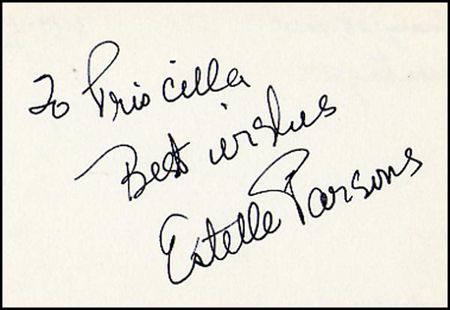 To Priscilla
Best wishes
Estelle Parsons